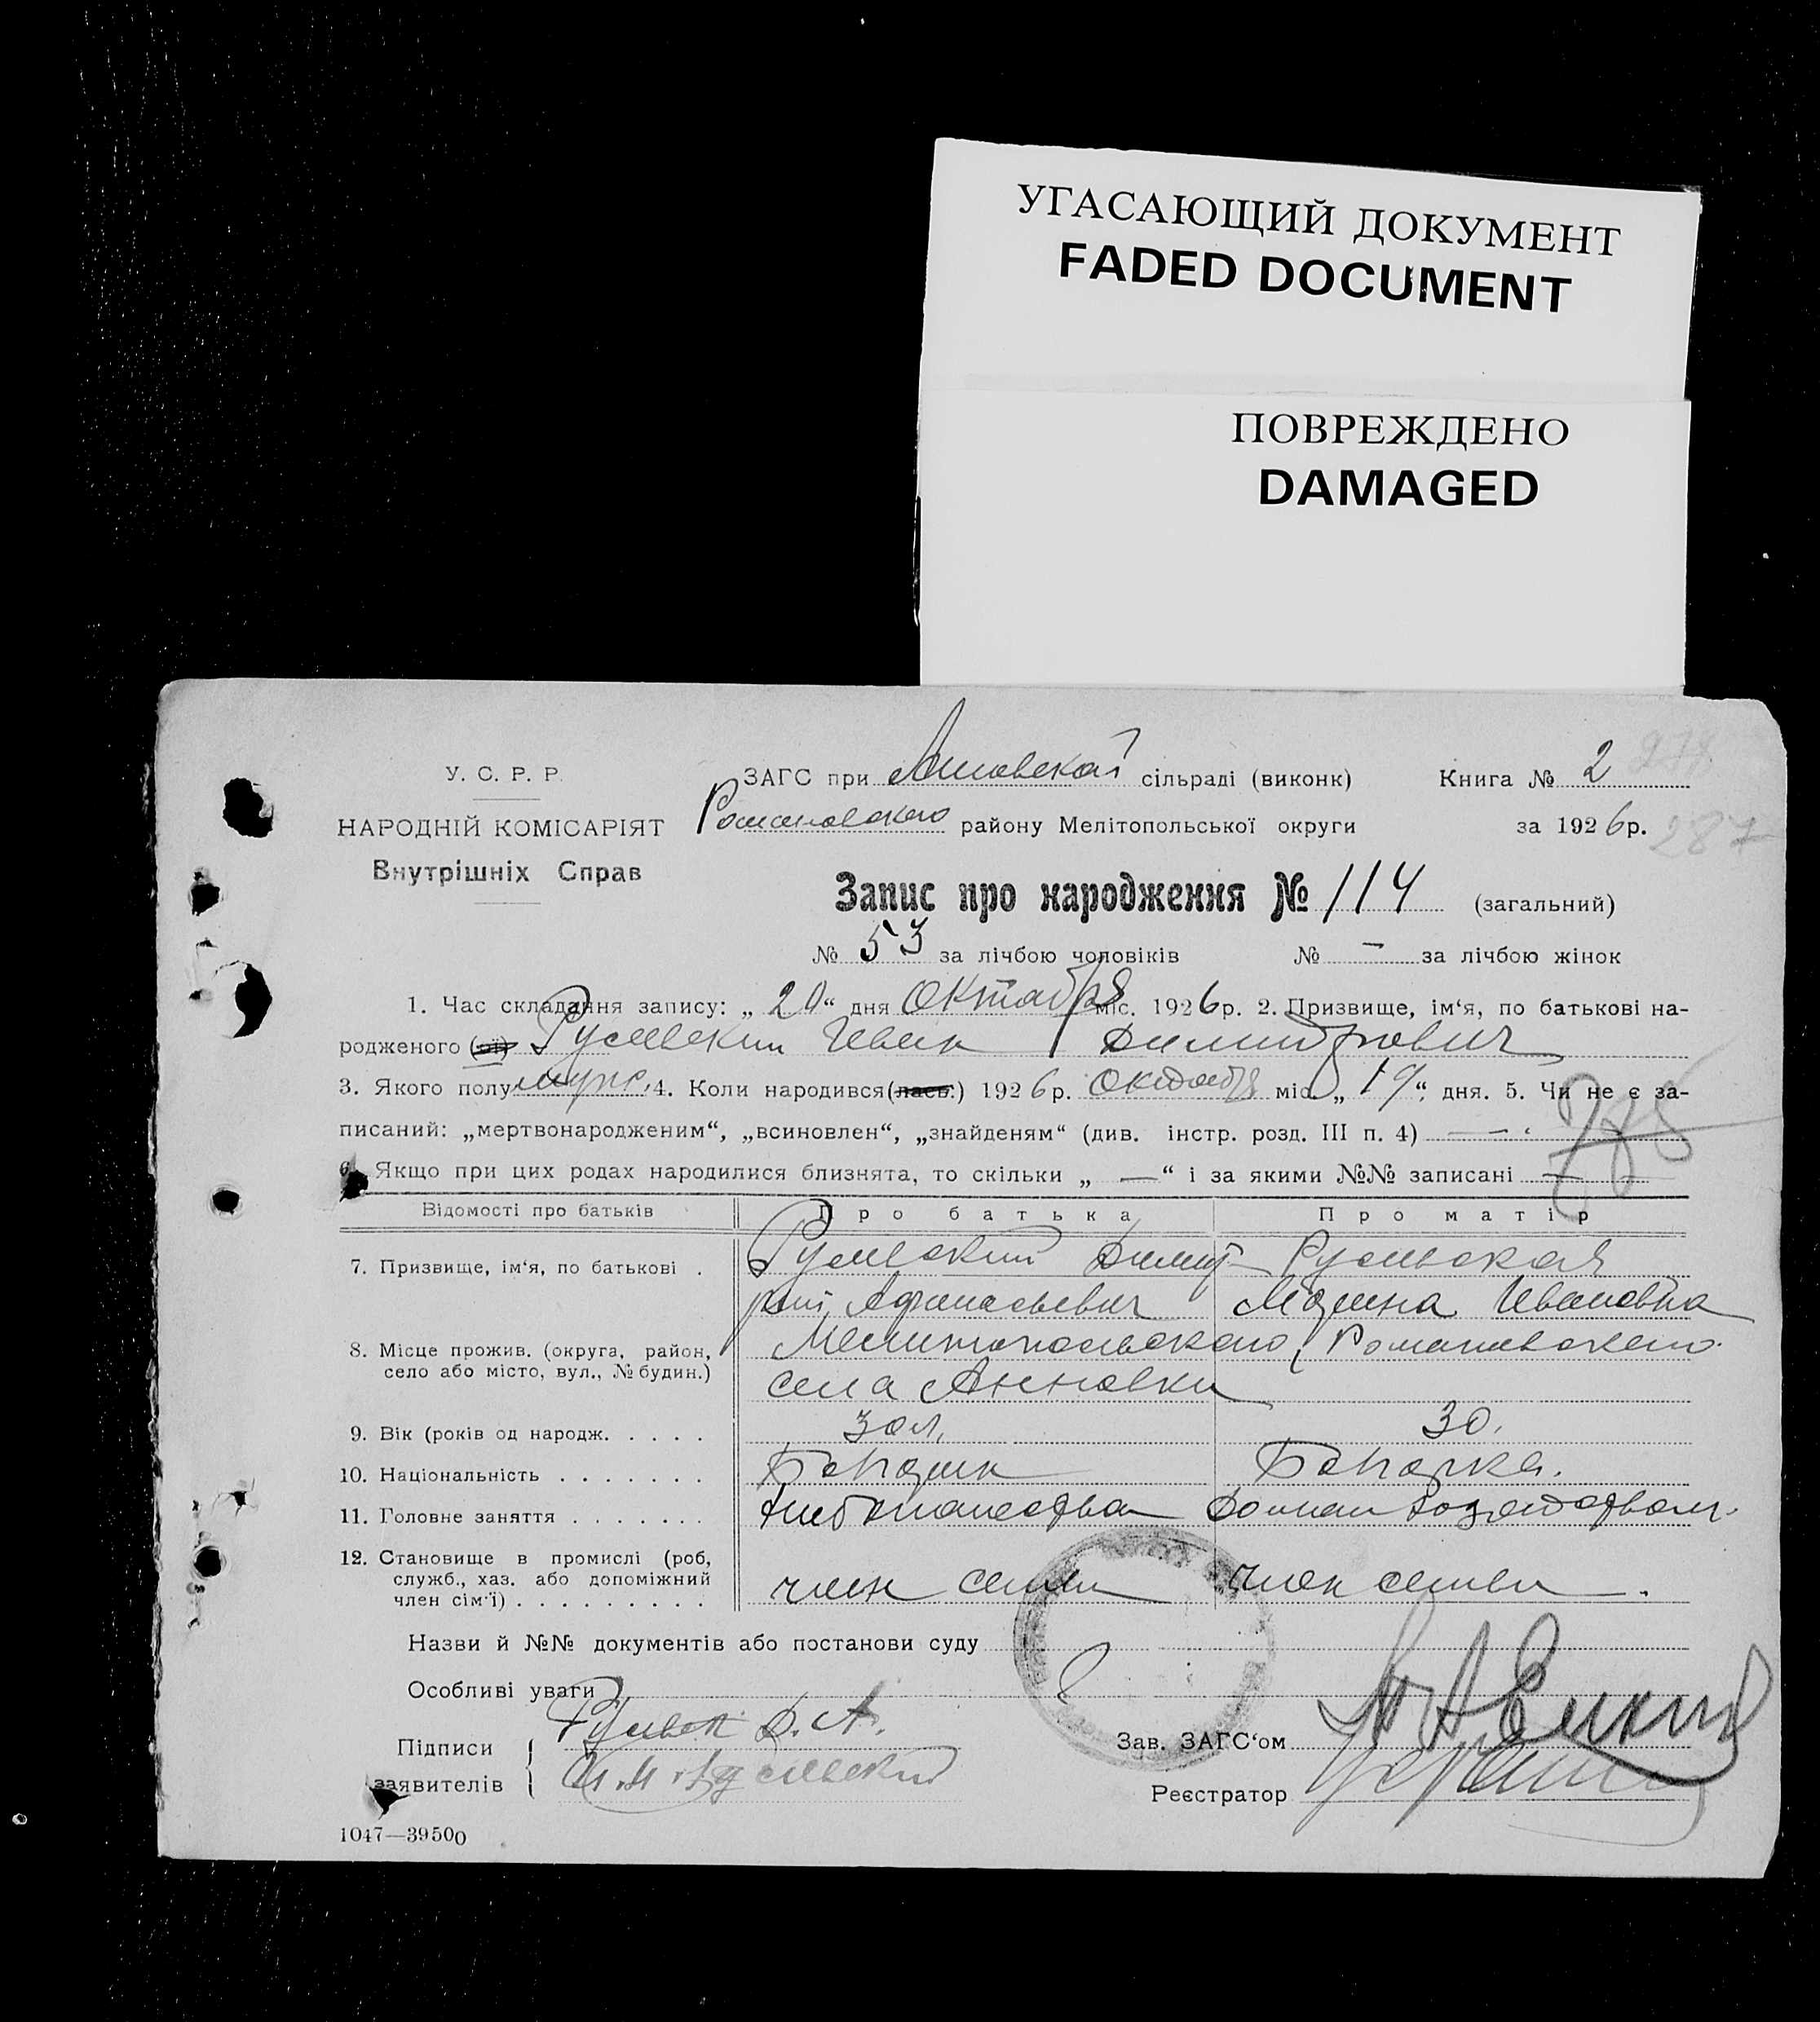 УГАСАЮЩИЙ ДОКУМЕНТ
FADED DOCUMENT
ПОВРЕЖДЕНО
DAMAGED
У. С. Р. Р.
НАРОДНІЙ КОМІСАРІЯТ
Внутрішніх Справ
ЗАГС при сільраді (виконк)
Книга № 2 278
Романовского району Мелітопольської округи
за 1926 р. 287
Запис про народження № 114 (загальний)
№ 53 за лічбою чоловіків № — за лічбою жінок
1. Час складання запису: „20“ дня Октября міс. 1926 р. 2. Призвище, ім‘я, по батькові на-
родженого (ої) Димитрович
3. Якого полу муж. 4. Коли народився (лась.) 1926 р. Октября міс. „19“, дня. 5. Чи не є за-
писаний: „мертвонародженим“, „всиновлен“, „знайденям“ (див. інстр. розд. III п. 4) —
6. Якщо при цих родах народилися близнята, то скільки „ — “ і за якими №№ записані —
Відомості про батьків
Про батька
Про матір
7. Призвище, ім‘я, по батькові .
Димит-
рий Афанасьевич
Ивановна
8. Місце прожив. (округа, район,
село або місто, вул., № будин.)
Мелитопольского, Романовского
села Анновки
9. Вік (років од народж. . . . .
30 л.
30.
10. Національність . . . . . . .
Болгарка.
11. Головне заняття . . . . . . .
12. Становище в промислі (роб,
служб., хаз. або допоміжний
член сім‘ї) . . . . . . . . .
член семьи
член семьи
Назви й №№ документів або постанови суду
Особливі уваги
Підписи
заявителів
Д. А.
Зав. ЗАГС‘ом
Реєстратор
1047—39500